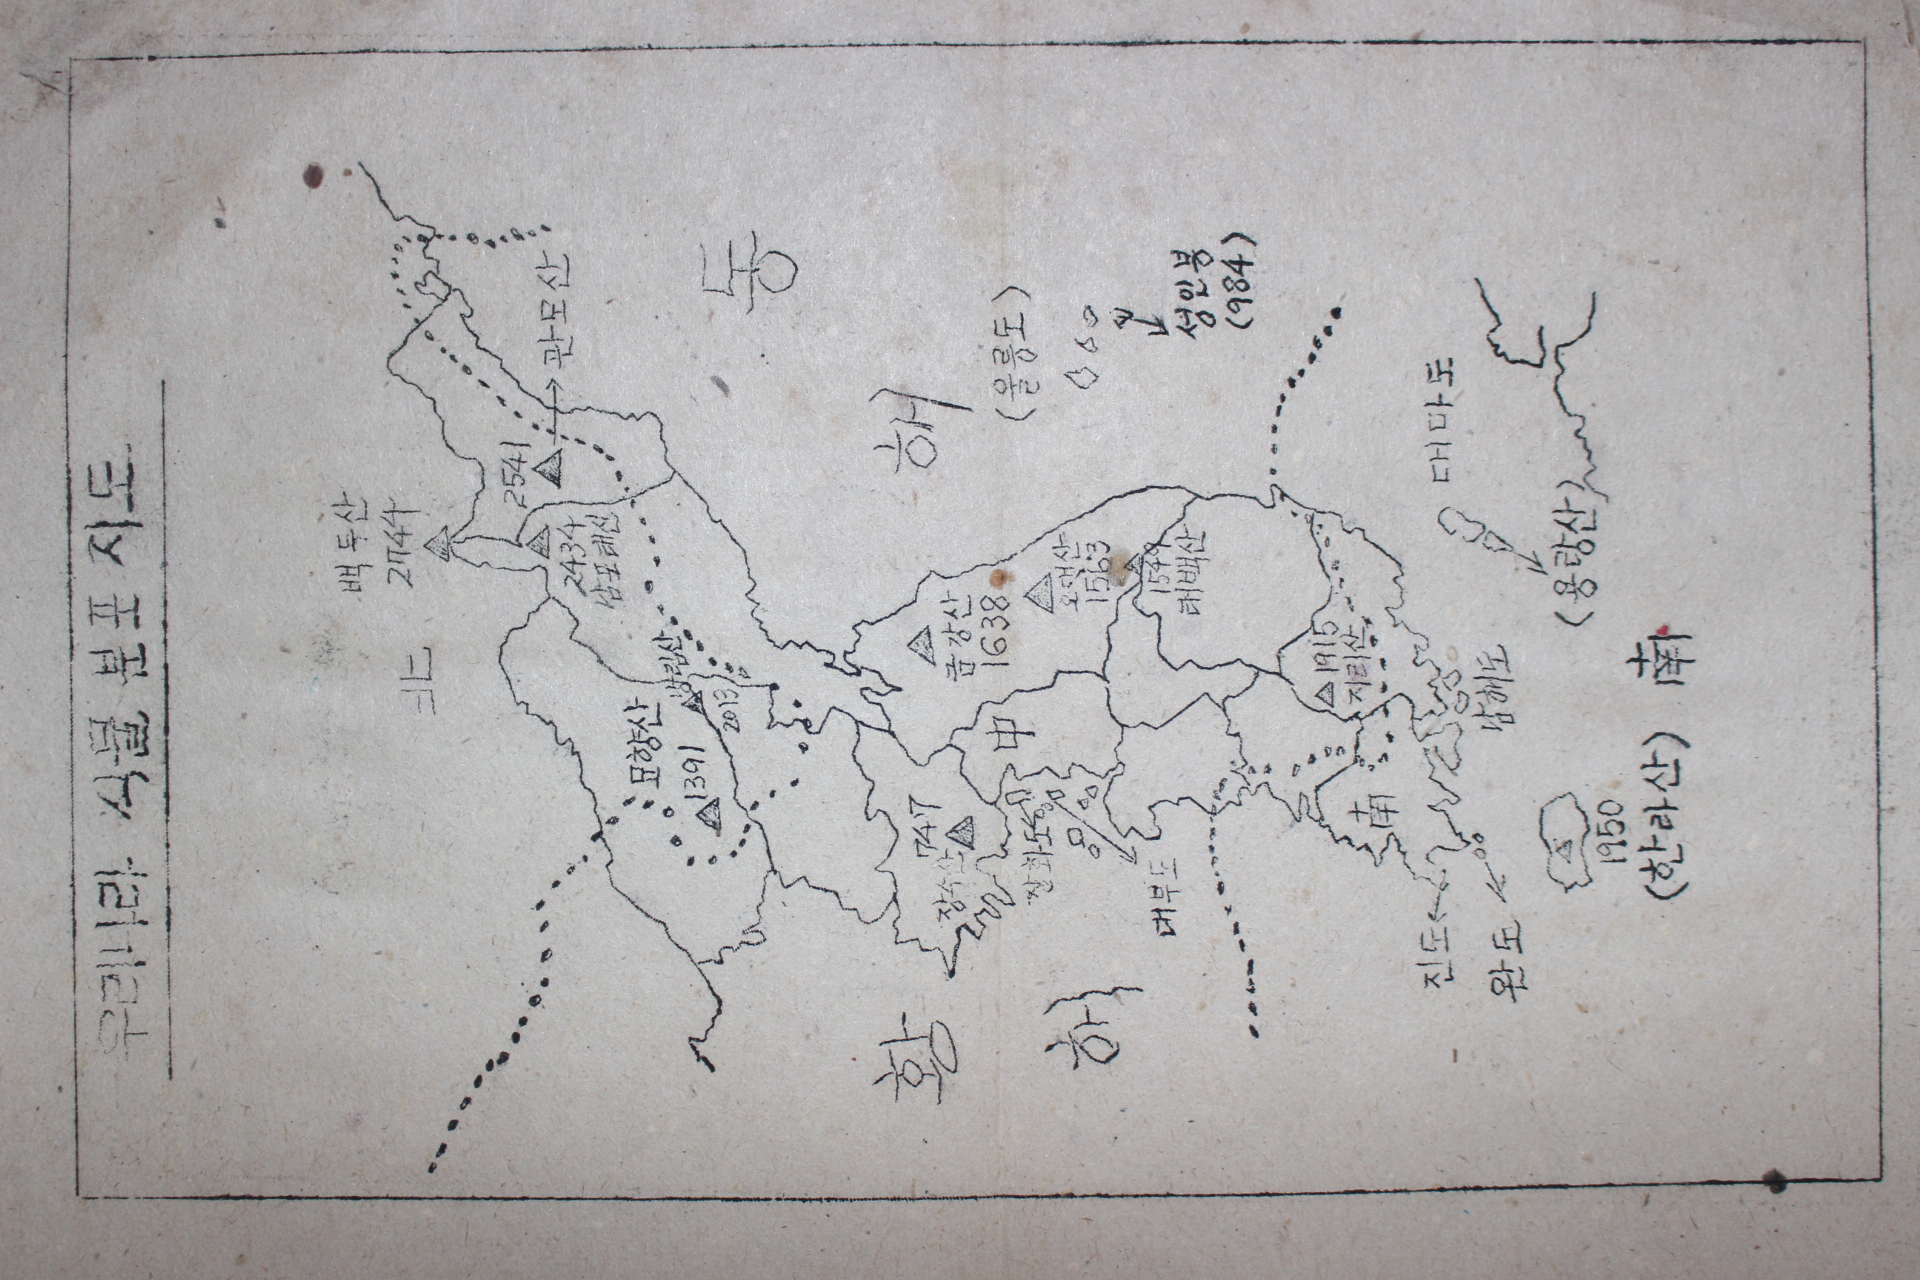 우리나라 식물 분포 지도
백두산
2744
北
2541
관모산
2434
남포태산
동
해
묘향산
1391
낭림산
2013
(울릉도)
성인봉
(984)
금강산
1638
오대산
1563
1549
태백산
中
747
장수산
강화도
대부도
황
하
1915
지리산
南
남해도
대마도
(용량산)
진도
완도
1950
(한라산)
南